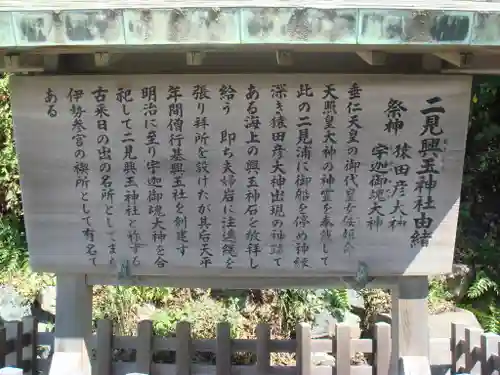 二見興玉神社由緒
祭神 猿田彦大神
宇迦御魂大神
垂仁天皇の御代皇女倭姫命
天照皇大神の神霊を奉戴して
此の二見浦に御船を停め神縁
深き猿田彦大神出現の神蹟で
ある海上の興玉神石を敬拝し
給う 即ち夫婦岩に注連縄を
張り拝所を設けたが其后天平
年間僧行基興玉社を創建す
明治に至り宇迦御魂大神を合
祀して二見興玉神社と称する
古来日の出の名所としてまた
伊勢参宮の禊所として有名で
ある